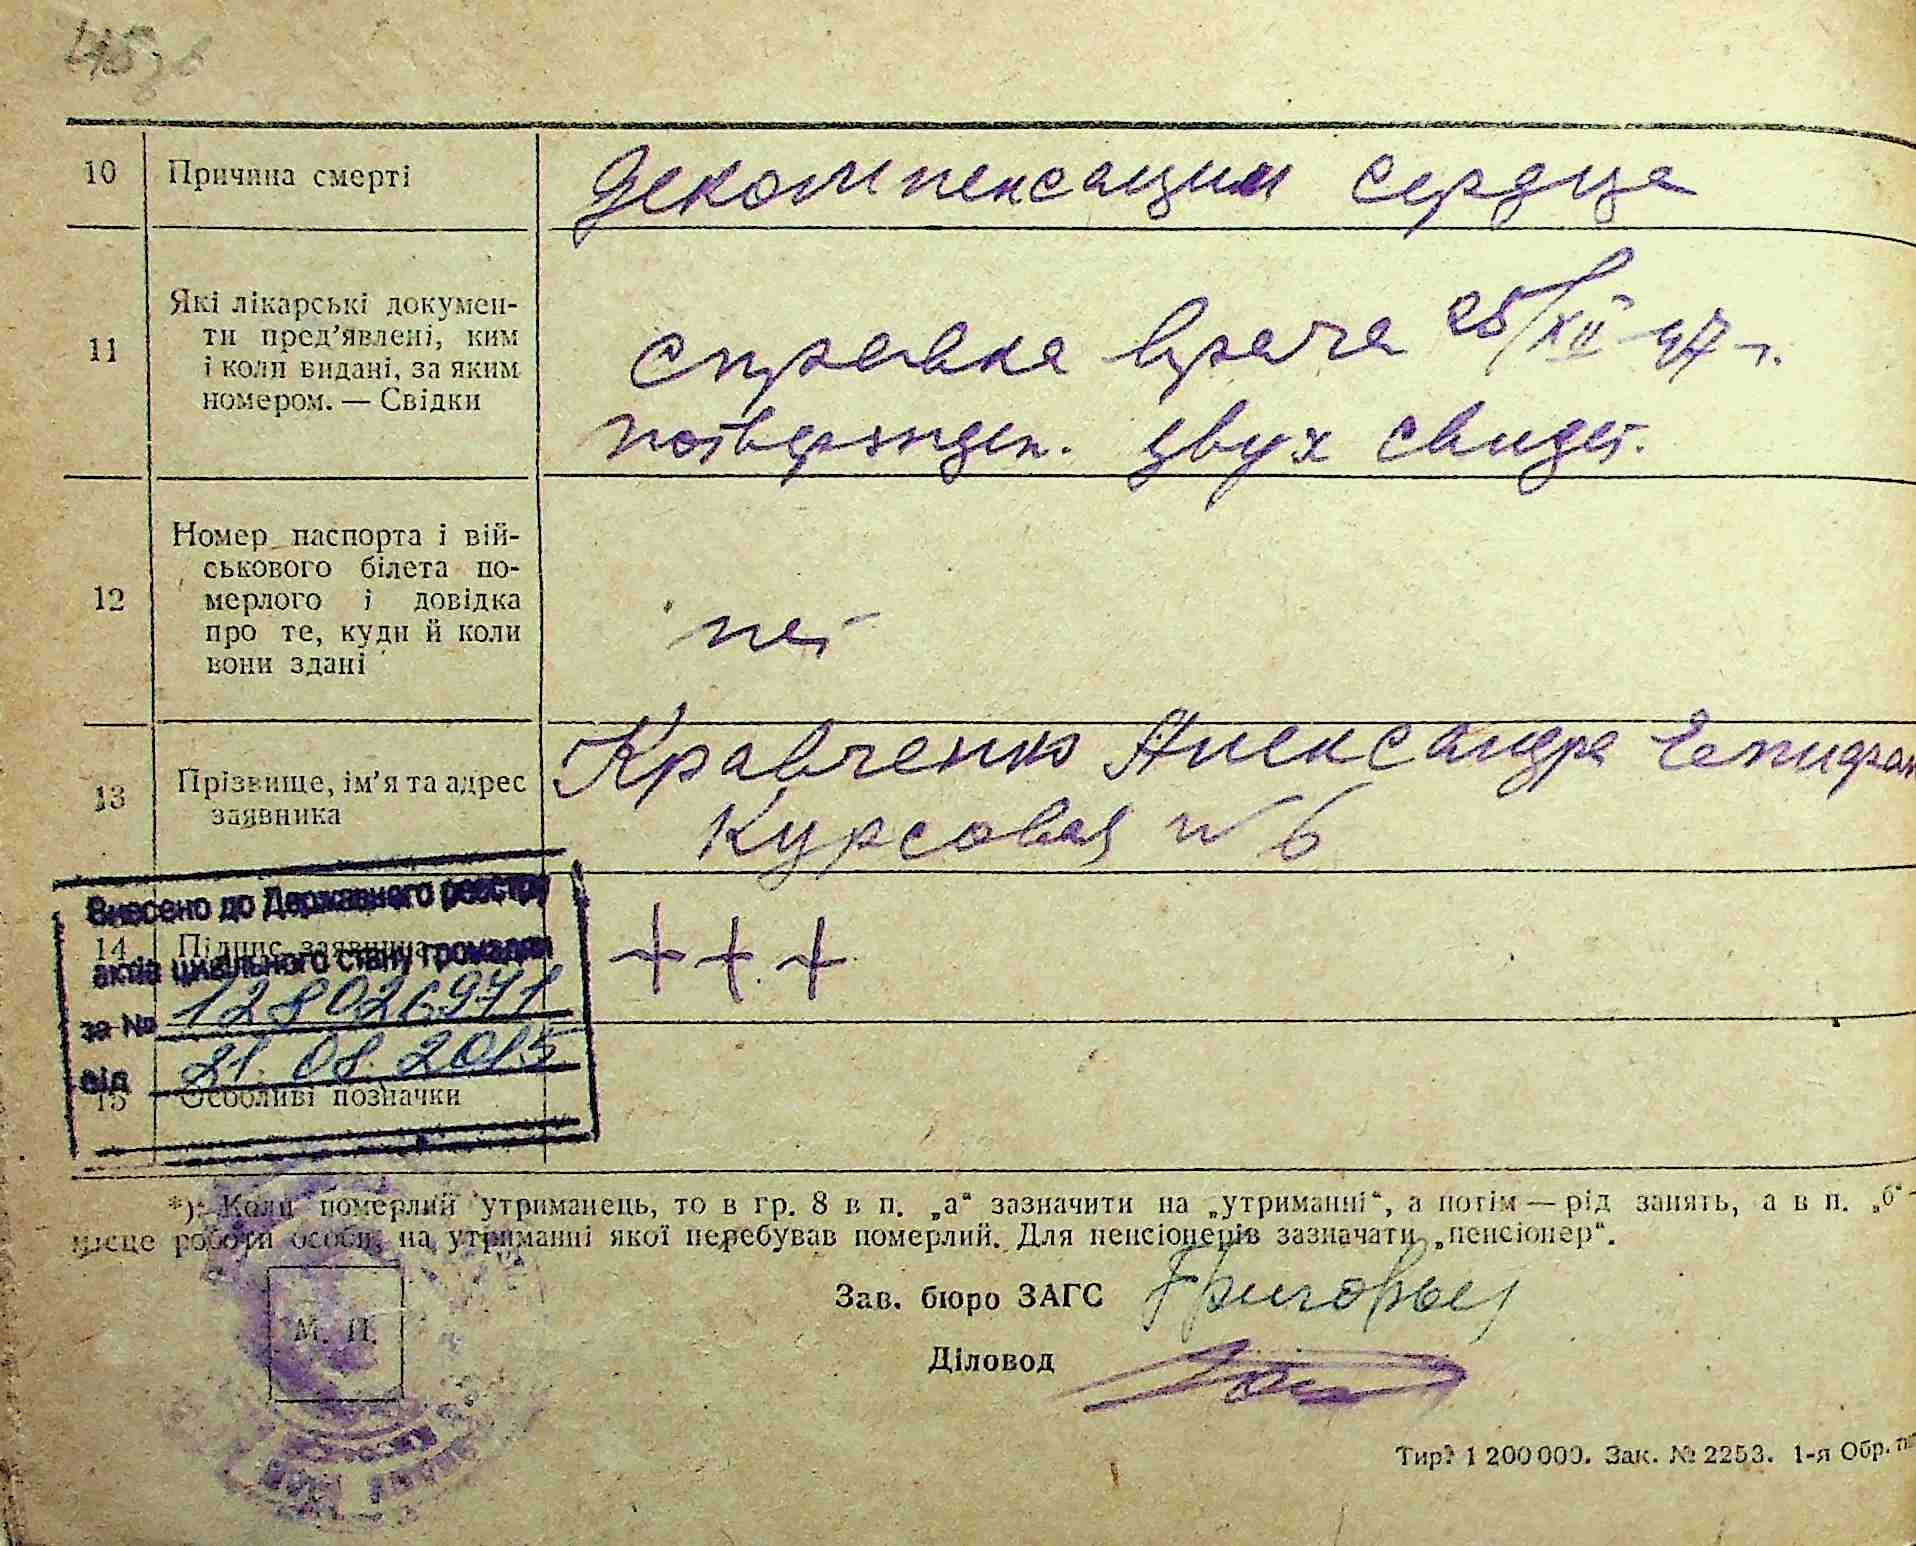 10 Причина смерті декомпенсации сердца
11 Які лікарські докумен-
ти пред'явлені, ким
і коли видані, за яким
номером. — Свідки
справка врача 25/XII-47 г.
потвержден. двух свидет.
12 Номер паспорта і вій-
ськового білета по-
мерлого і довідка
про те, куди й коли
вони здані
нет
13 Прізвище, ім'я та адрес
заявника
Кравченко Александра Епифан
Курсовая № 6
14 Підпис заявника + + +
15 Особливі позначки
Внесено до Державного реєстру
актів цивільного стану громадян
за № 128026971
від 21.08.2015
*) Коли померлий утриманець, то в гр. 8 в п. „а“ зазначити на „утриманні“, а потім — рід занять, а в п. „б“-
місце роботи особи, на утриманні якої перебував померлий. Для пенсіонерів зазначати „пенсіонер“.
М. П.
Зав. бюро ЗАГС
Діловод
Тир. 1 200 000. Зак. № 2253. 1-я Обр. тип